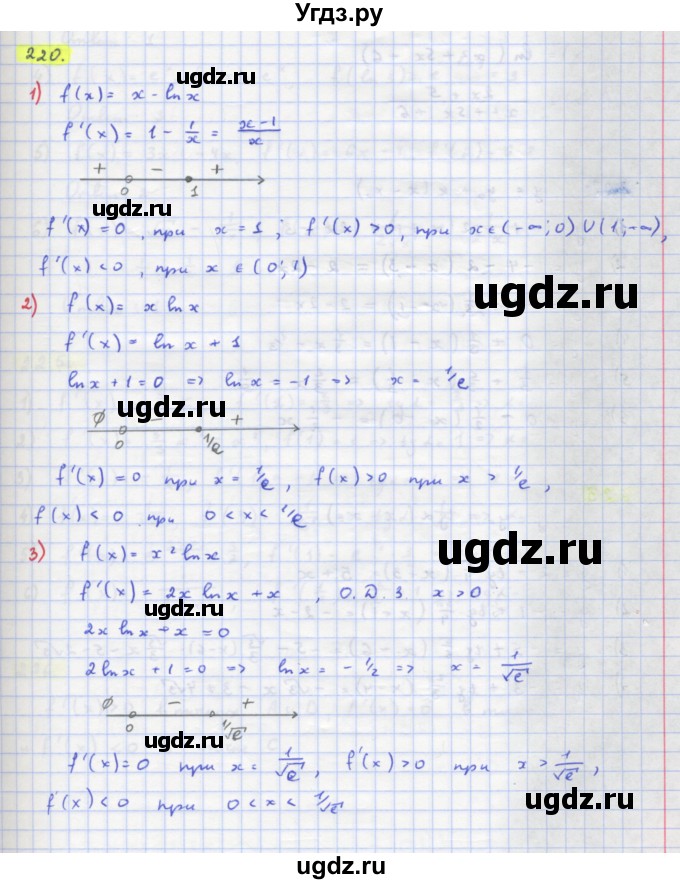 Угдз.ру
220.
ugdz.ru
1) f(x) = x - ln x
f'(x) = 1 - 1/x = (x-1)/x
ugdz.ru
+ - +
0 1
f'(x) = 0, при x = 1; f'(x) > 0, при x ∈ (-∞; 0) ∪ (1; -∞),
f'(x) < 0, при x ∈ (0; 1)
ugdz.ru
2) f(x) = x ln x
f'(x) = ln x + 1
ln x + 1 = 0 => ln x = -1 => x = 1/e
ugdz.ru
∅ - +
0 1/e
f'(x) = 0 при x = 1/e, f(x) > 0 при x > 1/e,
f(x) < 0 при 0 < x < 1/e
3) f(x) = x² ln x
ugdz.ru
f'(x) = 2x ln x + x, О.Д.З. x > 0
ugdz.ru
2x ln x + x = 0
2 ln x + 1 = 0 => ln x = - 1/2 => x = 1/√e
∅ - +
0 1/√e
ugdz.ru
f'(x) = 0 при x = 1/√e, f'(x) > 0 при x > 1/√e,
f'(x) < 0 при 0 < x < 1/√e
ugdz.ru